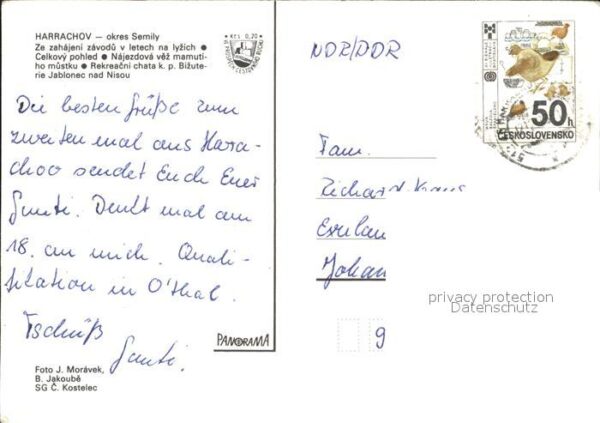 HARRACHOV — okres Semily
Ze zahájení závodů v letech na lyžích ●
Celkový pohled ● Nájezdová věž mamutí-
ho můstku ● Rekreační chata k. p. Bižute-
rie Jablonec nad Nisou
Kčs 0,20
NDR/DDR
50h
ČESKOSLOVENSKO
Die besten Grüße zum
zweiten mal aus Harra-
chov sendet Euch Euer
Denkt mal am
18. an mich. Quali-
fitation in O'thal.
Tschüß
Fam.
Richard
Johan
9
privacy protection
Datenschutz
PANORAMA
Foto J. Morávek,
B. Jakoubě
SG Č. Kostelec